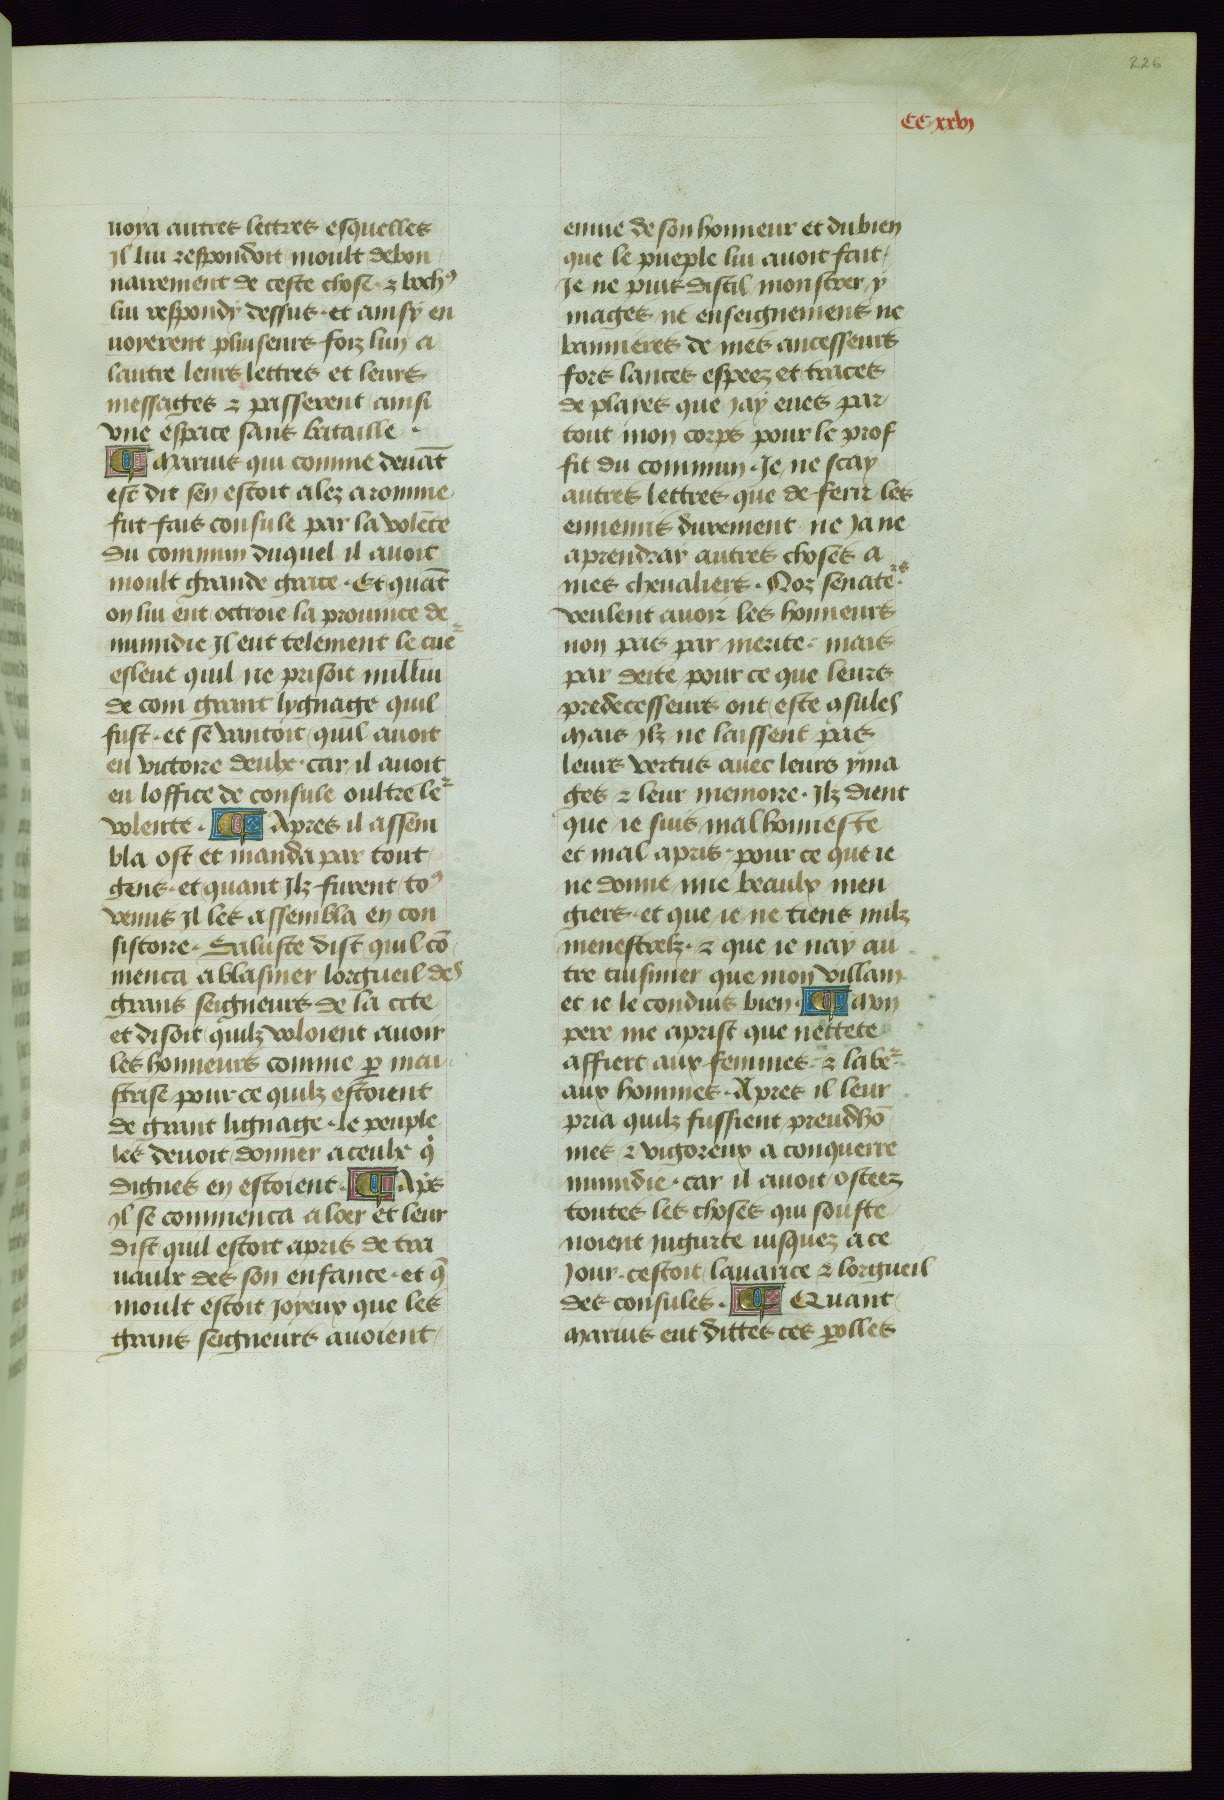 226
CC xxvj
uoya autres lettres esquelles
Il lui respondoit moult debon
nairement de ceste chose · ⁊ bochꝰ
lui respondy dessus · et ainsy en
uoyerent pluiseurs foiz lun a
lautre leurs lettres et leurs
messages ⁊ passerent ainsi
vne espace sans bataille ·
¶ Marius qui comme deuāt
est dit sen estoit alez a romme
fut fais consule par la volēte
du commun duquel il auoit
moult grande grace · Et quāt
on lui eut octroie la prouince de
numidie Il eut telement le cueʳ
esleue quil ne prisoit nulluí
de com grant lygnage quil
fust · et se vantoit quil auoit
eu victoire deulx · car il auoit
eu loffice de consule oultre leʳ
volente · ¶ Apres il assem
bla ost et manda par tout
gens · et quant Ilz furent toꝰ
venus Il les assembla en con
sistoire · Saluste dist quil cō
menca a blasmer lorgueil des
grans seigneurs de la cite
et disoit quilz voloient auoir
les honneurs comme ꝑ mai
strise pour ce quilz estoient
de grant lignage · le peuple
les deuoit donner a ceulx q̇
dignes en estoient · ¶ Ap̄s
Il se commenca a loer et leur
dist quil estoit apris de tra
uaulx des son enfance · et q̄
moult estoit Joyeux que les
grans seigneurs auoient
enuie de son honneur et du bien
que le pueple lui auoit fait
Je ne puis dist il monstrer y
mages ne enseignemens ne
bannieres de mes ancesseurs
fors lances espeez et traces
de playes que Jay eues par
tout mon corps pour le prof
fit du commun · Je ne scay
autres lettres que de ferir les
ennemis durement ne Ja ne
aprendray autres choses a
mes cheualiers · Noz senateʳˢ
veulent auoir les honneurs
non pas par merite · mais
par dete pour ce que leurs
predecesseurs ont este ꝯsules
Mais Ilz ne laissent pas
leurs vertus auec leurs yma
ges ⁊ leur memoire · Ilz dient
que ie suis mal honneste
et mal apris · pour ce que ie
ne donne mie beaulx men
giers · et que ie ne tiens nulz
menestrelz · ⁊ que ie nay au
tre cuisinier que mon villain
et ie le conduis bien · ¶ Mon
pere me aprist que nettete
affiert aux femmes · ⁊ labeʳ
aux hommes · Apres il leur
pria quilz fussient preudhō
mes ⁊ vigoreux a conquerre
numidie · car il auoit osteez
toutes les choses qui souste
noient iugurte iusquez a ce
Jour · cestoit lauarice ⁊ lorgueil
des consules · ¶ Quant
Marius eut dittes ces ꝑolles